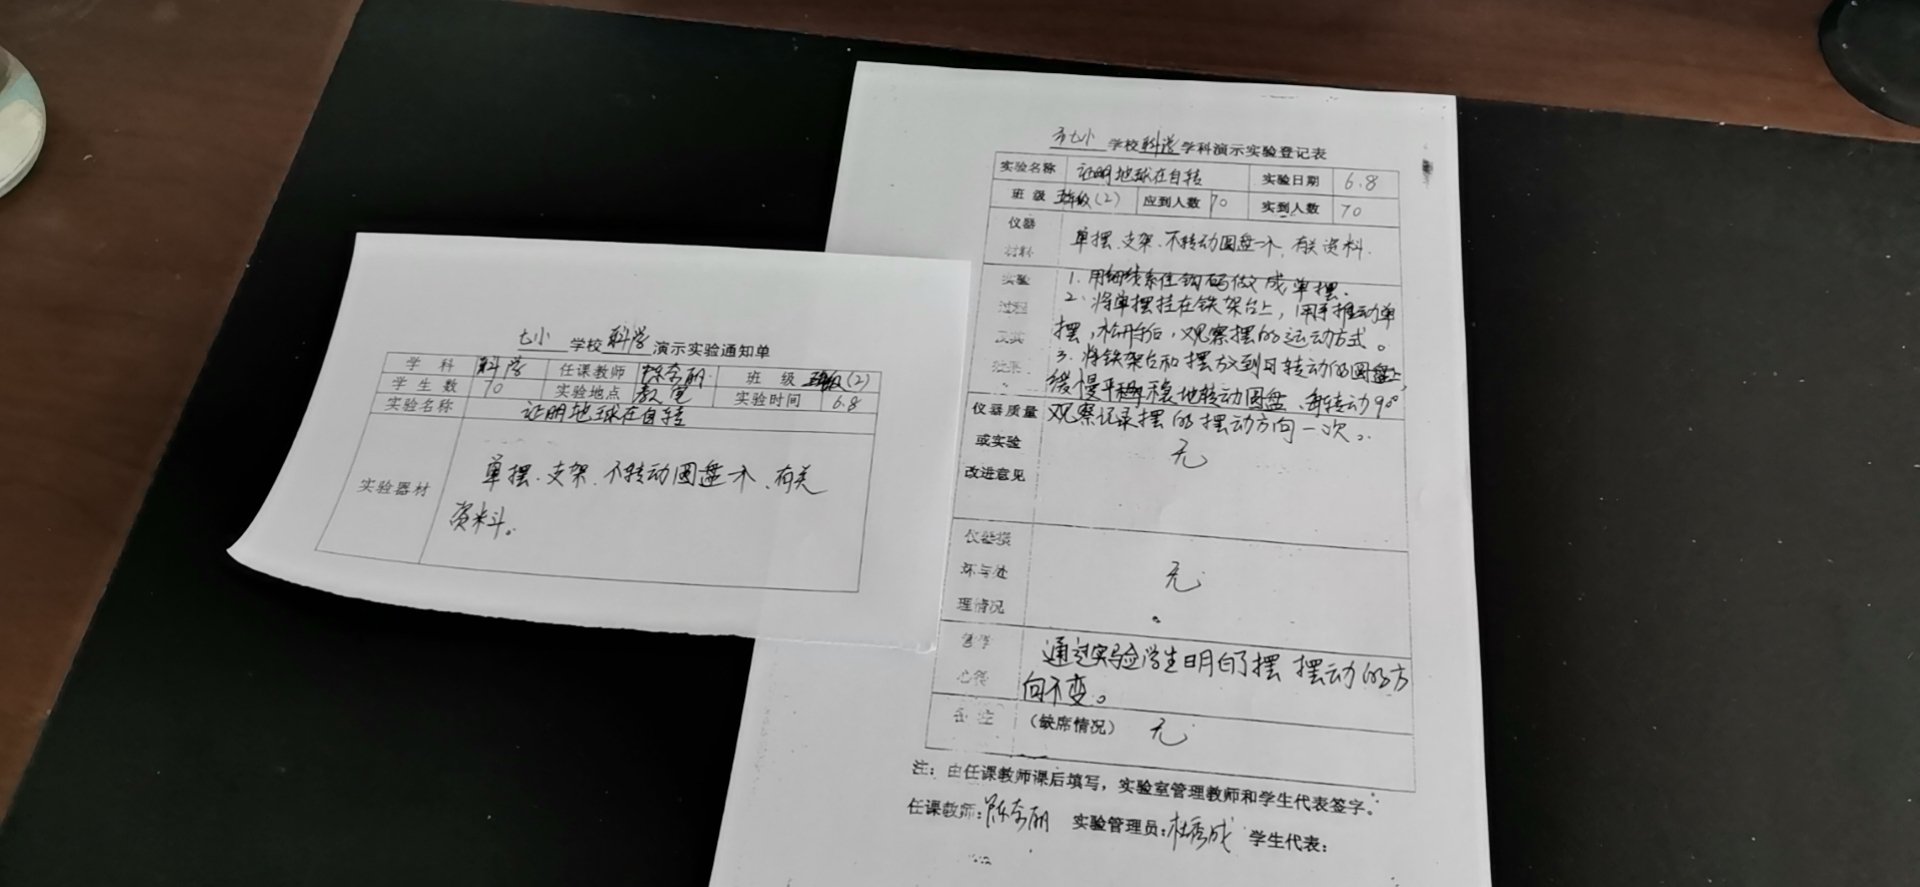 七小 学校 科学 演示实验通知单
学 科 科学 任课教师 班 级 五年级(2)
学生数 70 实验地点 教室 实验时间 6.8
实验名称 证明地球在自转
实验器材 单摆、支架、不转动圆盘一个、有关
资料。
市七小 学校科学学科演示实验登记表
实验名称 证明地球在自转 实验日期 6.8
班 级 五年级(2) 应到人数 70 实到人数 70
仪器
材料
单摆、支架、不转动圆盘一个、有关资料.
实验
过程
及其
结果
1. 用细线系住钩码做成单摆.
2. 将单摆挂在铁架台上,用手推动单
摆,松开手后,观察摆的运动方式。
3. 将铁架台和摆放到可转动的圆盘上,
缓慢平稳地转动圆盘、每转动90°
观察记录摆的摆动方向一次。
仪器质量
或实验
改进意见
无
仪器损
坏与处
理情况
无
通过实验学生明白了摆 摆动的方
向不变。
备 注 (缺席情况) 无
注:由任课教师课后填写,实验室管理教师和学生代表签字。
任课教师: 实验管理员:杜秀成 学生代表: